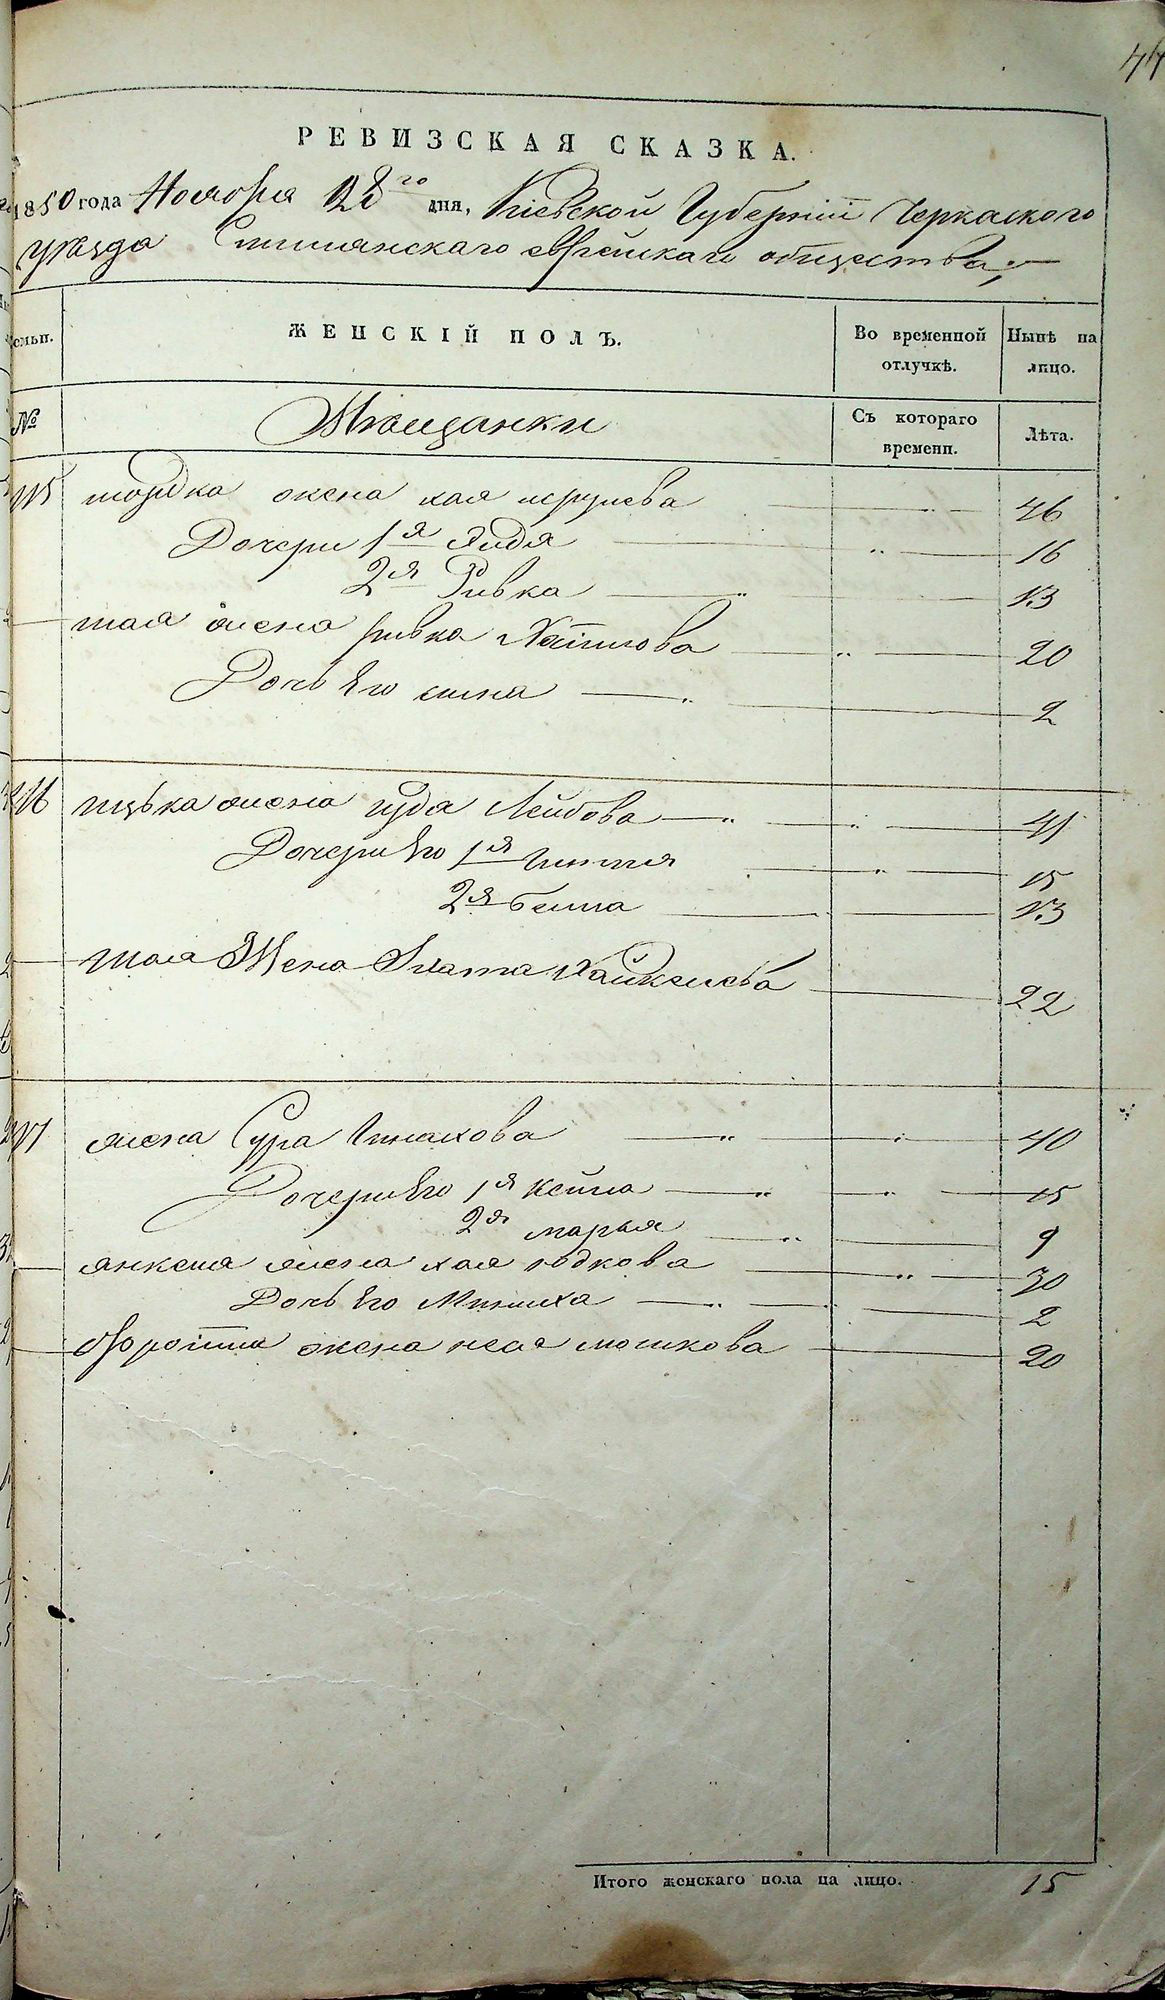 44
РЕВИЗСКАЯ СКАЗКА.
1850 года Ноября 28го дня, Кіевской Губерніи Черкаского
уезда Смилянскаго еврейскаго общества,
ЖЕНСКІЙ ПОЛЪ.
Во временной отлучкѣ.
Нынѣ на лицо.
№
Мѣщанки
Съ котораго времени.
Лѣта.
115 жена хая 46
Дочери 1я 16
2я Ривка 13
жена ривка 20
Дочь Его 2
116 ицька жена Лейбова 41
Дочери Его 1я 15
2я бейла 13
Жена Злата 22
117 жена Сура 40
Дочери Его 1я Кейла 15
2я марья 9
янкеля жена хая юдкова 30
Дочь Его 2
жена неся мошкова 20
Итого женскаго пола на лицо. 15